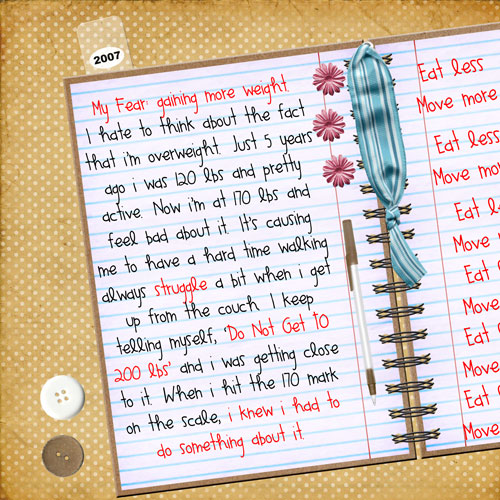 2007
My Fear: gaining more weight.
I hate to think about the fact
that i'm overweight. Just 5 years
ago i was 120 lbs and pretty
active. Now i'm at 170 lbs and
feel bad about it. It's causing
me to have a hard time walking
always struggle a bit when i get
up from the couch. I keep
telling myself, 'Do Not Get to
200 lbs' and i was getting close
to it. When i hit the 170 mark
on the scale, i knew i had to
do something about it.
Eat less
Move more
Eat less
Move mor
Eat l
Move
Eat
Move
Eat
Move
Eat
Move